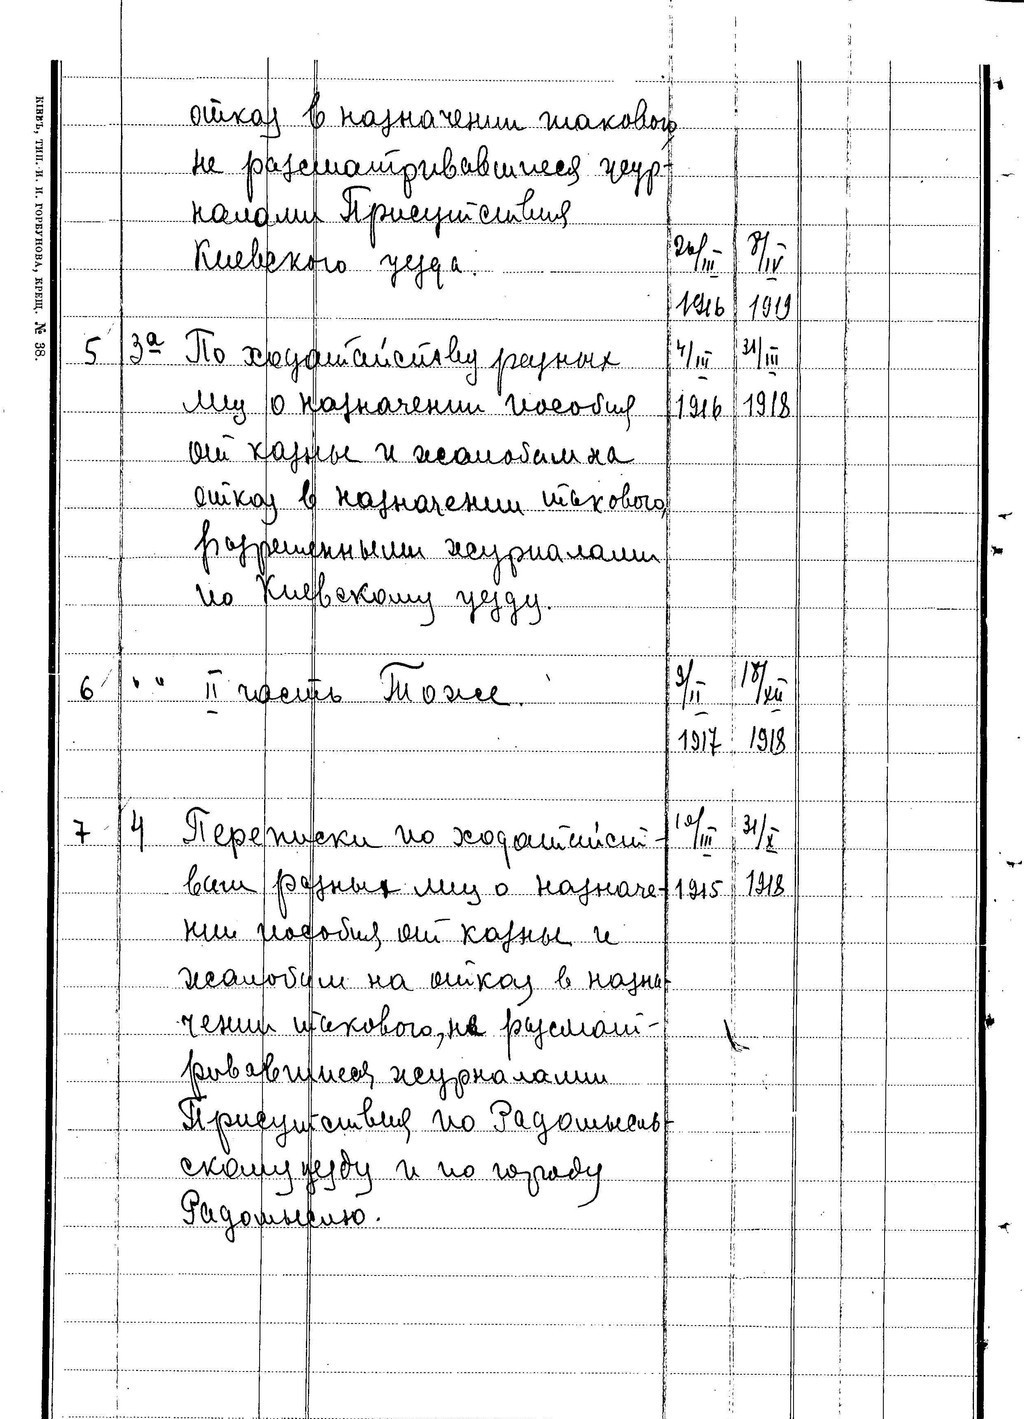 КІЕВЪ, ТИП. И. И. ГОРБУНОВА, КРЕЩ. № 38.
отказ в назначении такового
не разсматривавшиеся жур-
налами Присутствия
Киевского уезда. 26/III 8/IV
1916 1919
5 3а По ходатайству разных 4/III 31/III
лиц о назначении пособия 1916 1918
от казны и жалобам на
отказ в назначении такового,
разрешенными журналами
по Киевскому уезду.
6 " " II часть Тоже. 9/II 18/XII
1917 1918
7 4 Переписки по ходатайст- 10/III 31/X
вам разных лиц о назначе- 1915 1918
нии пособия от казны и
жалобам на отказ в назна-
чении такового, не разсмат-
ровавшиеся журналами
Присутствия по Радомысль-
скому уезду и по городу
Радомыслю.